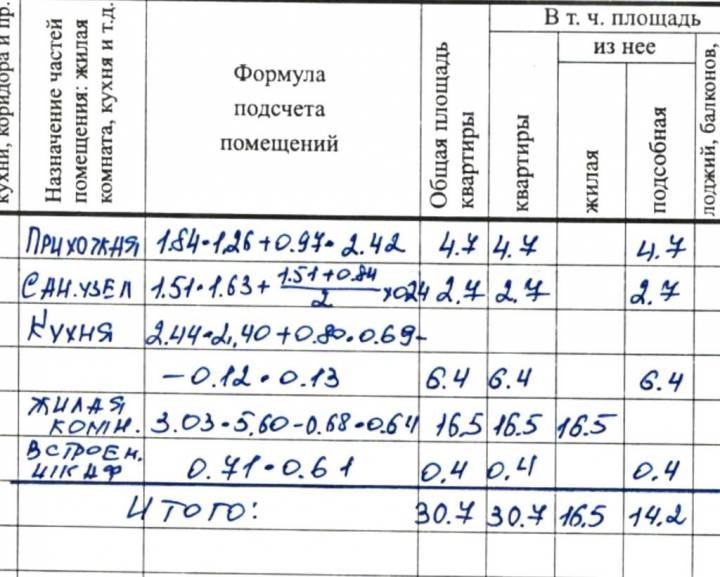 кухни, коридора и пр.
Назначение частей
помещения: жилая
комната, кухня и т.д.
Формула
подсчета
помещений
Общая площадь
квартиры
В т. ч. площадь
квартиры
из нее
жилая
подсобная
лоджий, балконов,
Прихожая 1.84·1.26+0.97·2.42 4.7 4.7 4.7
Сан.узел 1.51·1.63+(1.51+0.84)/2×0.24 2.7 2.7 2.7
Кухня 2.44·2.40+0.80·0.69-
-0.12·0.13 6.4 6.4 6.4
Жилая
комн. 3.03·5.60-0.68·0.64 16.5 16.5 16.5
Встроен.
шкаф 0.71·0.61 0.4 0.4 0.4
Итого: 30.7 30.7 16.5 14.2